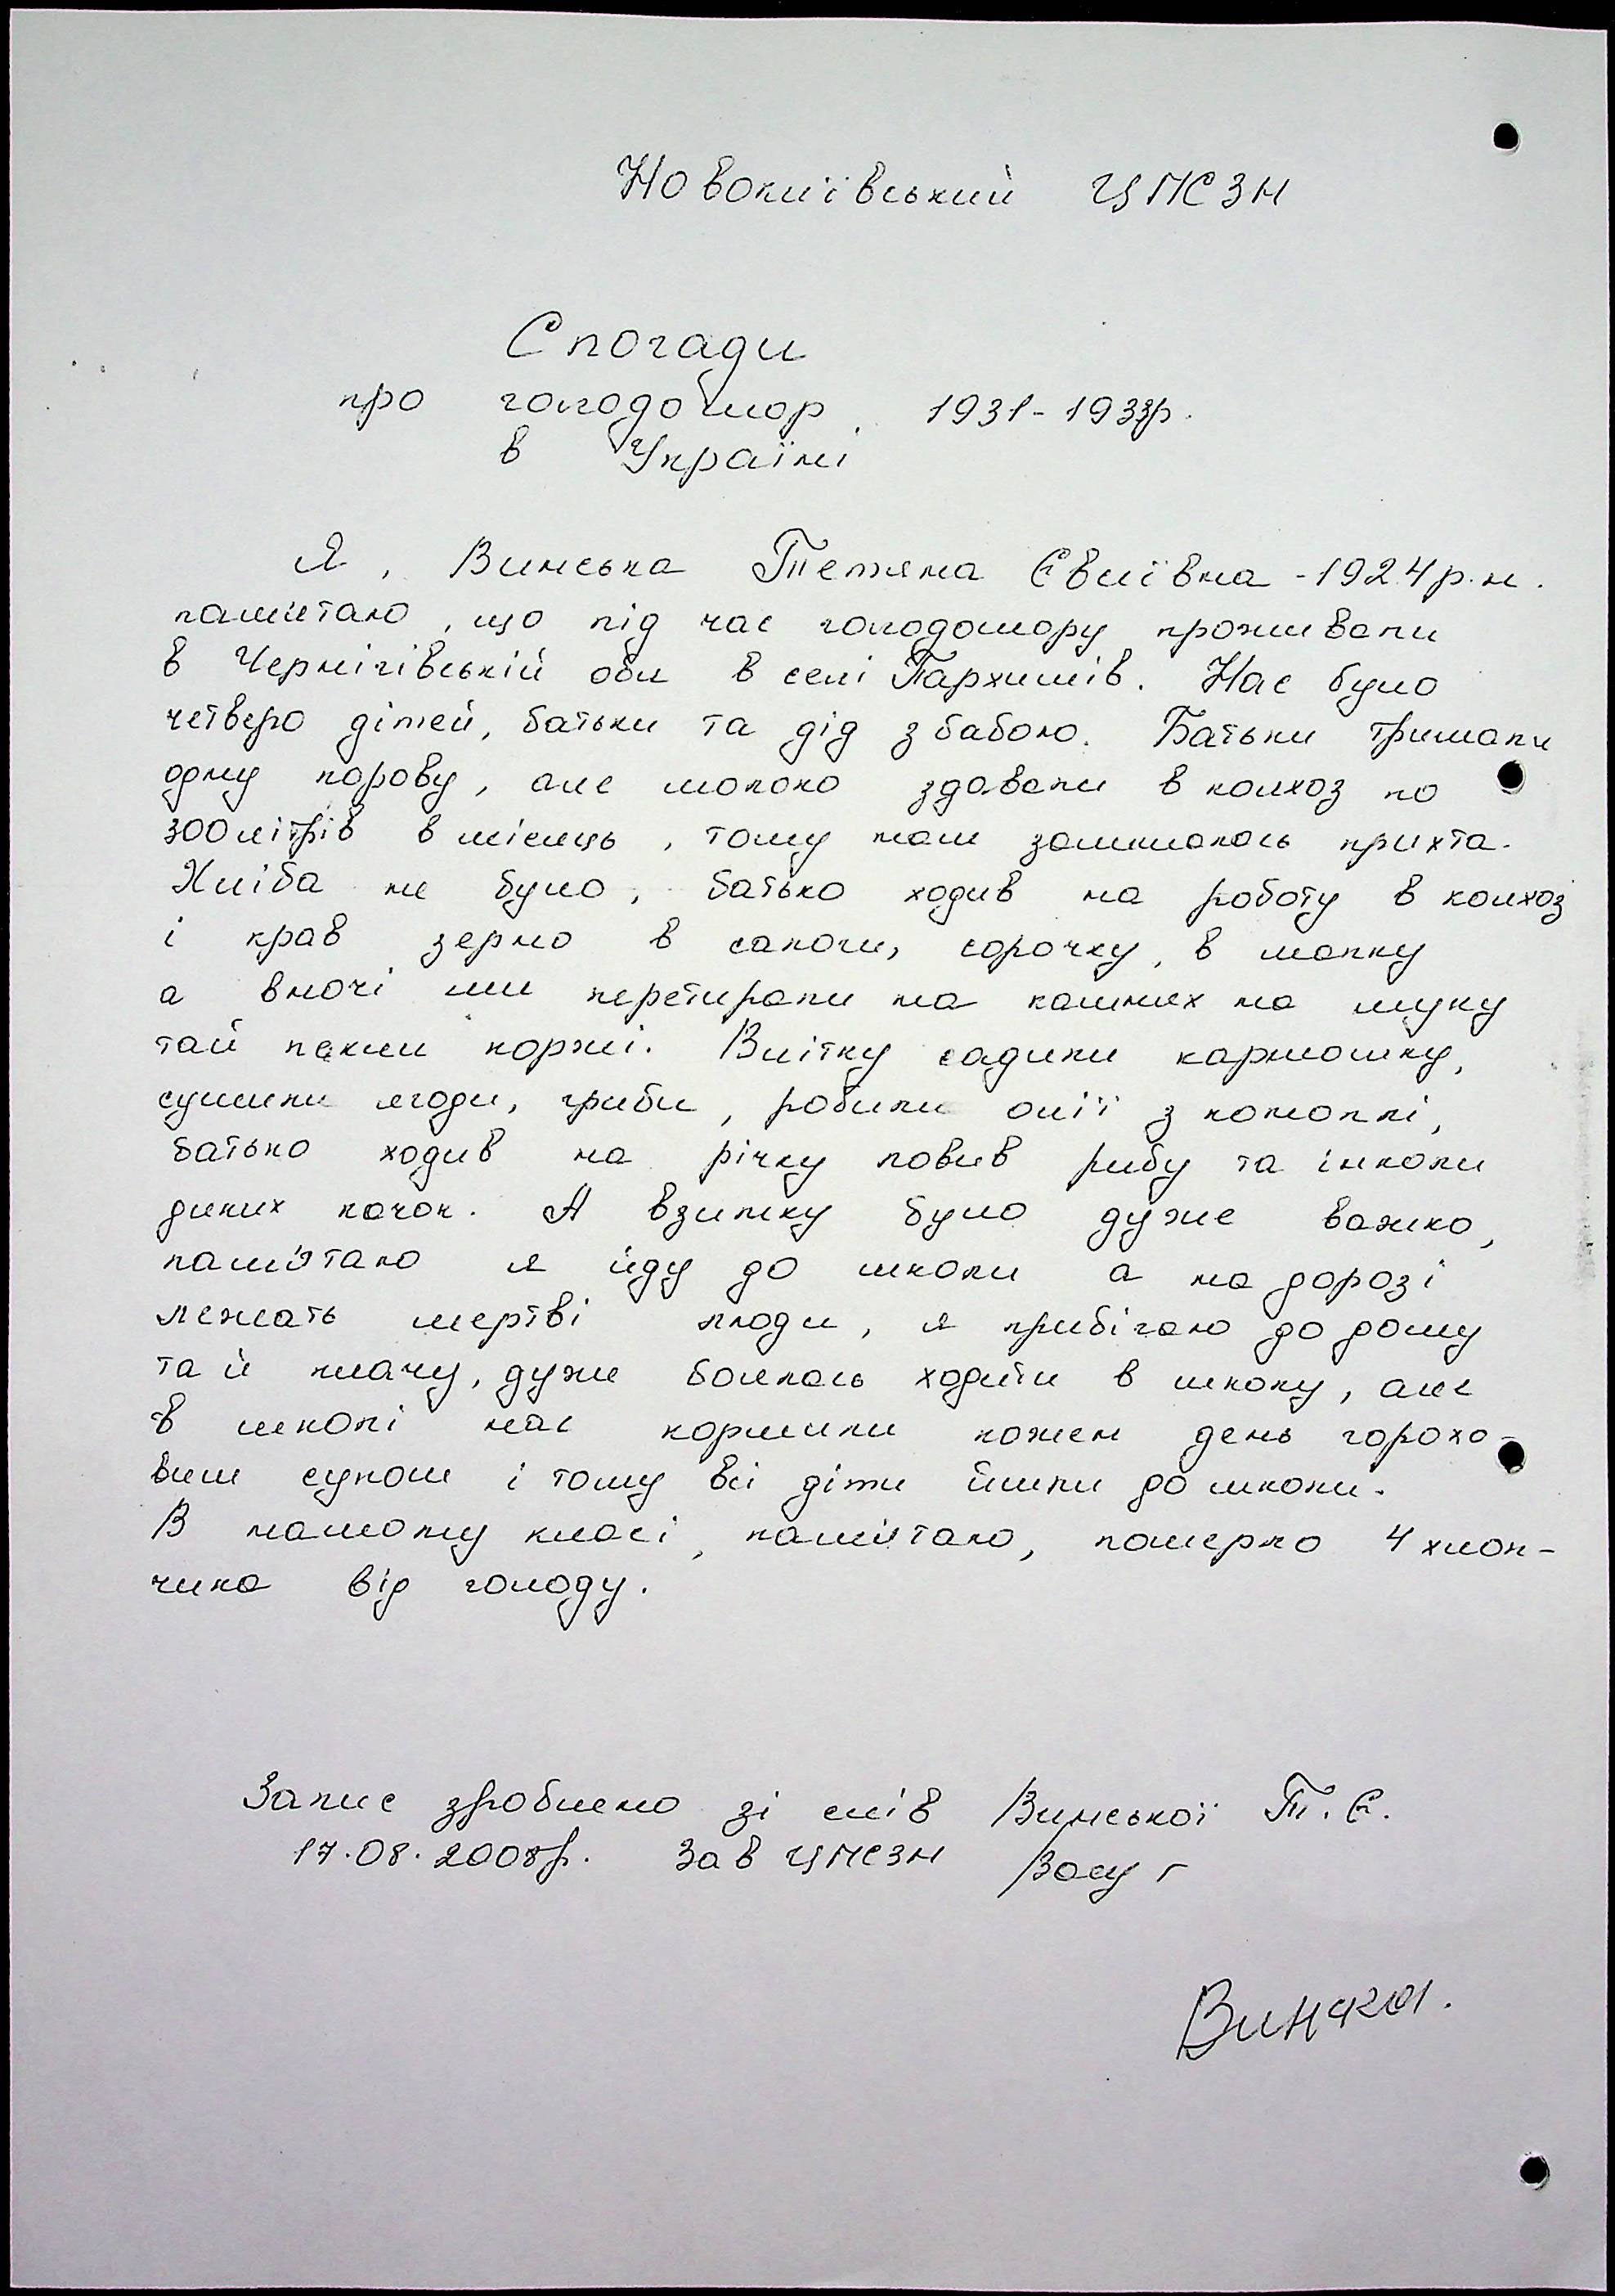 Новокиївський ЦПСЗН
Спогади
про голодомор 1931-1933р.
в Україні
Я, Винська Тетяна Євлівна - 1924 р.н.
пам'ятаю, що під час голодомору проживали
в Чернігівській обл в селі Пархимів. Нас було
четверо дітей, батьки та дід з бабою. Батьки тримали
одну корову, але молоко здавали в колхоз по
300 літрів в місяць, тому нам залишалось крихта.
Хліба не було, батько ходив на роботу в колхоз
і крав зерно в сапоги, сорочку, в шапку
а вночі ми перетирали на камнях на муку
тай пекли коржі. Влітку садили картошку,
сушили ягоди, гриби, робили олії з коноплі,
батько ходив на річку ловив рибу та інколи
диких качок. А взимку було дуже важко,
пам'ятаю я йду до школи а на дорозі
лежать мертві люди, я прибігаю до дому
та й плачу, дуже боялась ходити в школу, але
в школі нас кормили кожен день горохо-
вим супом і тому всі діти йшли до школи.
В нашому класі, пам'ятаю, померло 4 хлоп-
чика від голоду.
Запис зроблено зі слів Винської Т. Є.
17.08.2008р. Зав ЦПСЗН